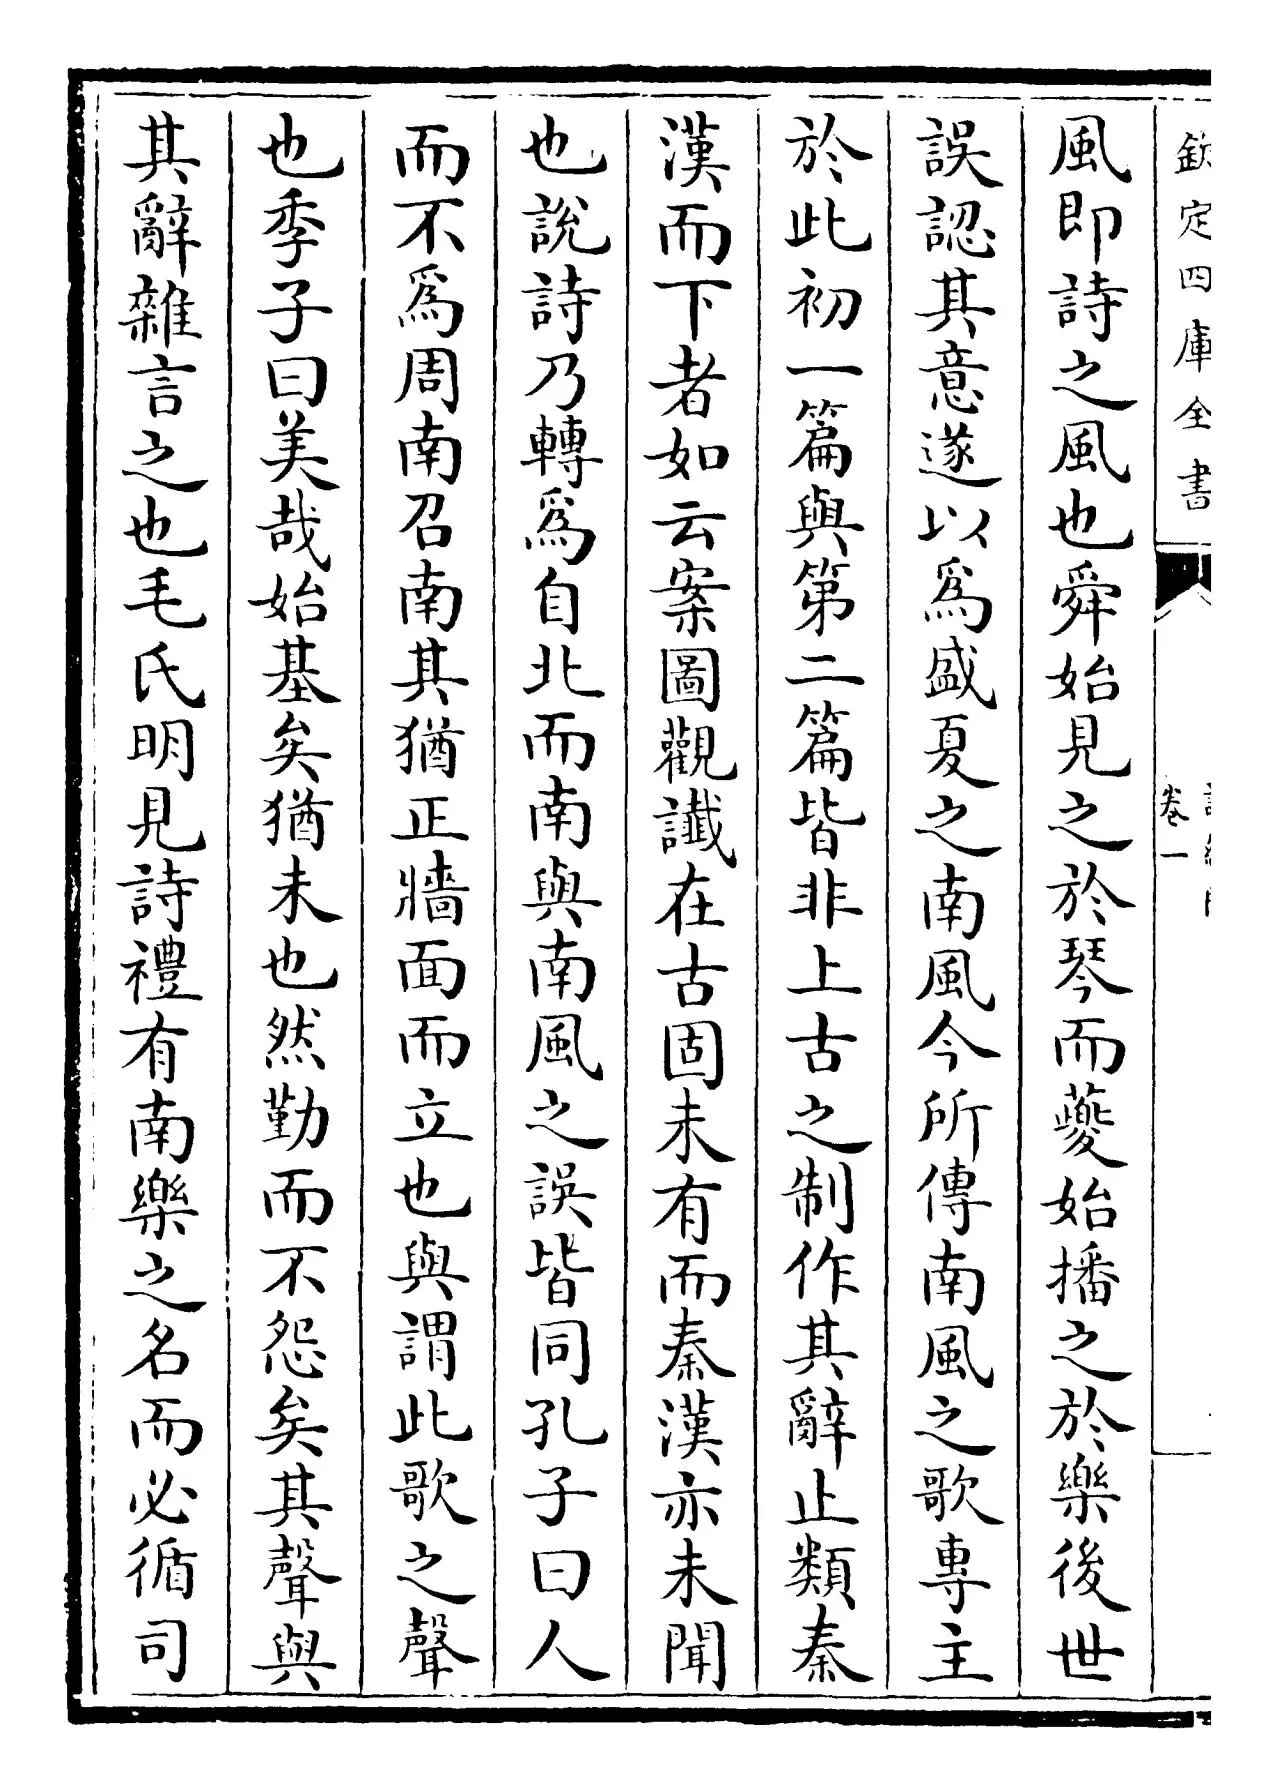 欽定四庫全書
卷一
風即詩之風也舜始見之於琴而夔始播之於樂後世
誤認其意遂以為盛夏之南風今所傳南風之歌專主
於此初一篇與第二篇皆非上古之制作其辭止類秦
漢而下者如云案圖觀讖在古固未有而秦漢亦未聞
也說詩乃轉為自北而南與南風之誤皆同孔子曰人
而不為周南召南其猶正牆面而立也與謂此歌之聲
也季子曰美哉始基矣猶未也然勤而不怨矣其聲與
其辭雜言之也毛氏明見詩禮有南樂之名而必循司